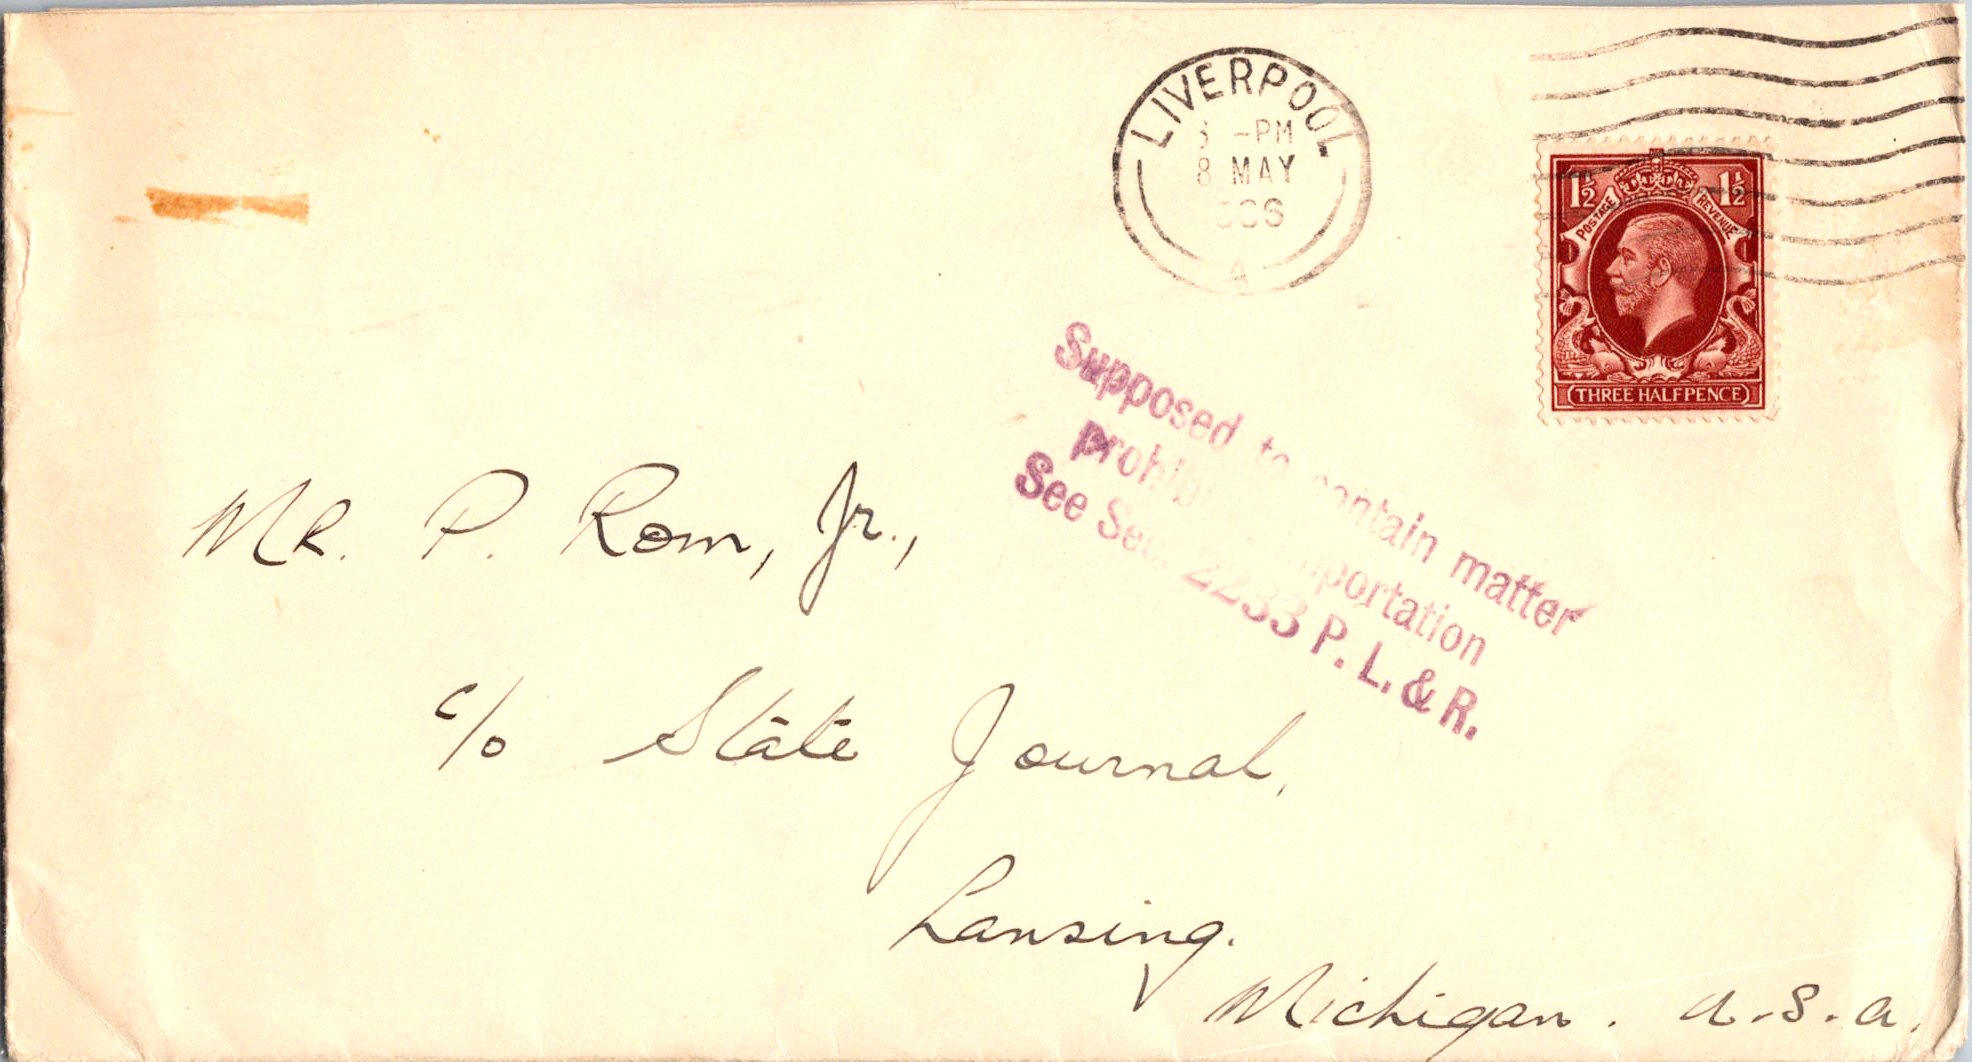 LIVERPOOL
-PM
8 MAY
A
1½ 1½
POSTAGE REVENUE
(THREE HALFPENCE)
Supposed to contain matter
prohib importation
See Sec. 2233 P. L. & R.
MR. P. Rom, Jr.,
c/o State Journal,
Lansing.
Michigan. U.S.A.